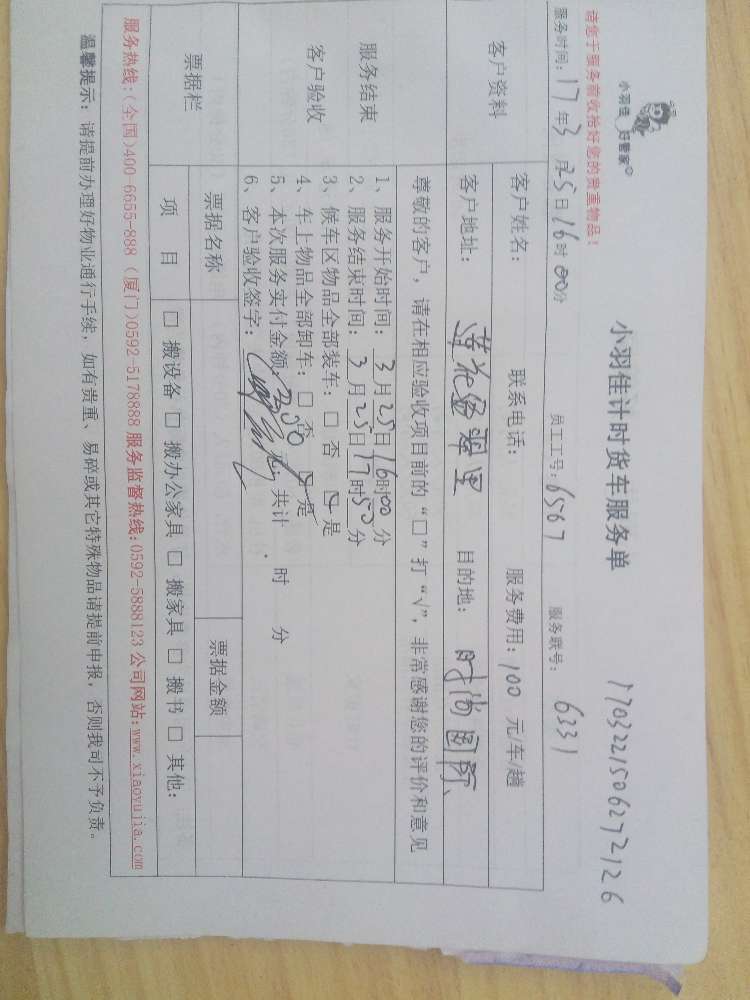 小羽佳 好管家®
小羽佳计时货车服务单
1703221506272126
请您于服务前收拾好您的贵重物品!
服务时间: 17 年 3 月 25 日 16 时 00 分 员工工号: 6567 服务联号: 6331
客户资料
客户姓名: 联系电话: 服务费用: 100 元/车/趟
客户地址: 莲花 翠里 目的地: 时尚国际
服务结束
客户验收
尊敬的客户，请在相应验收项目前的“□”打“√”，非常感谢您的评价和意见
1、服务开始时间: 3 月 25 日 16 时 00 分
2、服务结束时间: 3 月 25 日 17 时 50 分
3、候车区物品全部装车: □ 否 □ 是
4、车上物品全部卸车: □ 否 □ 是
5、本次服务实付金额: 元，共计 时 分
6、客户验收签字:
票据栏
票据名称 票据金额
项 目 □ 搬设备 □ 搬办公家具 □ 搬家具 □ 搬书 □ 其他:
服务热线:(全国)400-6655-888 (厦门)0592-5178888 服务监督热线:0592-5888123 公司网站:www.xiaoyujia.com
温馨提示: 请提前办理好物业通行手续，如有贵重、易碎或其它特殊物品请提前申报，否则我司不予负责。